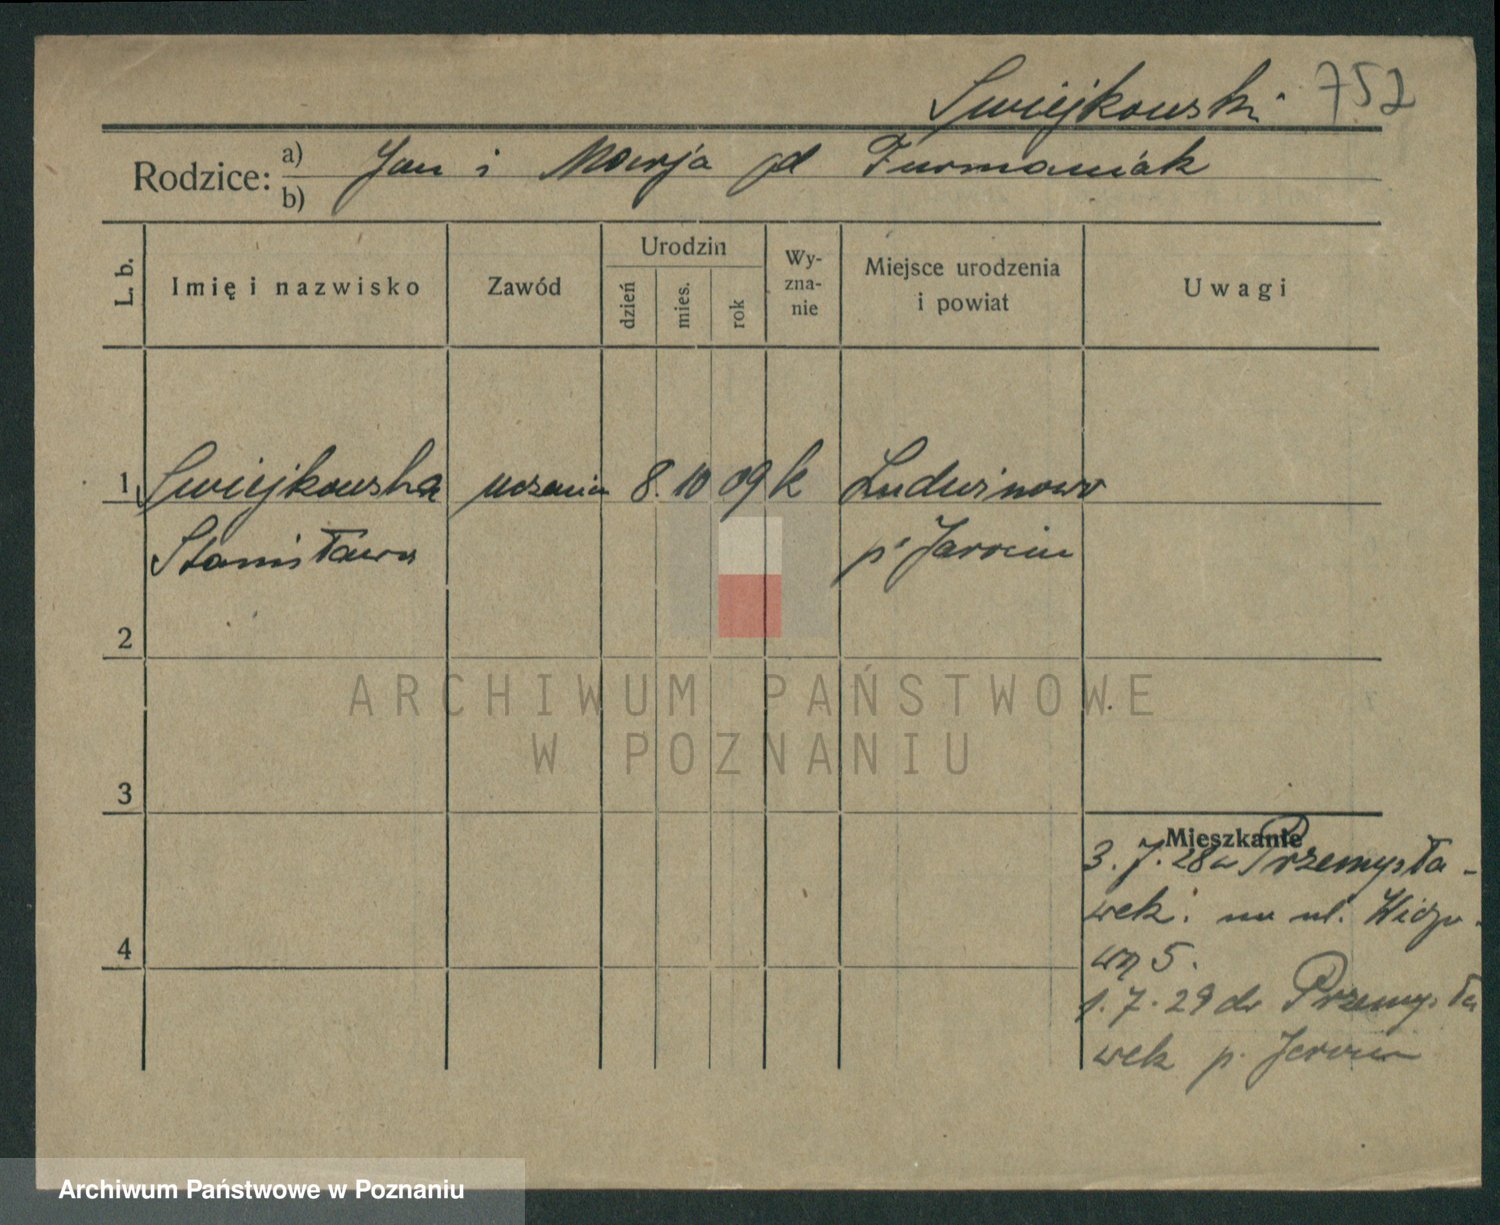 Swiejkowski 752
Rodzice: a) b) Jan i Marja Furmaniak
L. b.
Imię i nazwisko
Zawód
Urodzin
dzień
mies.
rok
Wy-
zna-
nie
Miejsce urodzenia
i powiat
Uwagi
1 Swiejkowska uczenica 8. 10 09 k Ludwinowo
Stanisława p. Jarocin
2
ARCHIWUM PAŃSTWOWE
W POZNANIU
3
Mieszkanie
3. 7. 28 Przemysła-
wek. na ul.
4
5.
1. 7. 29 do Przemysła
wek p. Jarocin
Archiwum Państwowe w Poznaniu